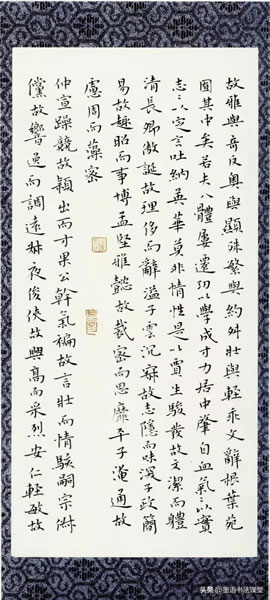 故雅與奇反奧與顯殊繁與約舛壯與輕乖文辭根葉苑
囿其中矣若夫八體屢遷功以學成才力居中肇自血氣〻以實
志〻以定言吐納英華莫非情性是以賈生駿發故文潔而體
清長卿傲誕故理侈而辭溢子雲沉寂故志隱而味深子政簡
易故趣昭而事博孟堅雅懿故裁密而思靡平子淹通故
慮周而藻密
仲宣躁競故穎出而才果公幹氣褊故言壯而情駭嗣宗俶
儻故響逸而調遠叔夜俊俠故興高而采烈安仁輕敏故
头条 @墨语书法课堂